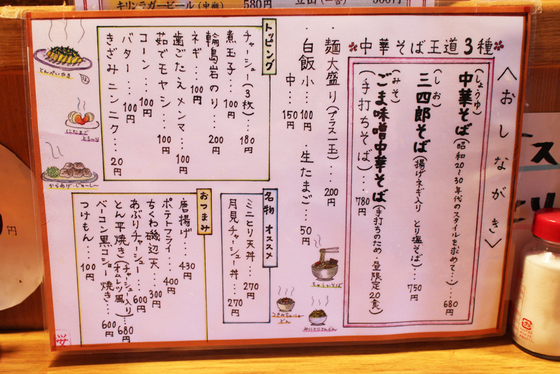 キリンラガービール（中瓶） 580円
500円
〈おしながき〉
中華そば王道3種
(しょうゆ)
中華そば（昭和20〜30年代のスタイルを求めて…）… 680
(しお)
三四郎そば（揚げネギ入り とり塩そば）… 750
(みそ)
ごま味噌中華そば（手打ちのため・昼限定20食）
（手打ちそば）… 780円
・麺大盛り（プラス一玉）… 200
・白飯 小… 100 ・生たまご… 50
中… 150円
トッピング
チャーシュー（3枚）… 180
煮玉子… 100円
輪島岩のり… 200
ネギ… 100円
歯ごたえメンマ… 100
茹でモヤシ… 100円
コーン… 100円
バター… 100
きざみニンニク… 20円
名物 オススメ
ミニとり天丼… 270円
月見チャーシュー丼… 270
おつまみ
唐揚げ… 430
ポテトフライ… 400円
ちくわ磯辺天… 300
あぶりチャーシュー… 600円
とん平焼き（チャーシュー入りオムレツ風）… 680
ベーコン黒コショー焼き… 600円
つけもん… 100円
とんぺいやき
にたまご